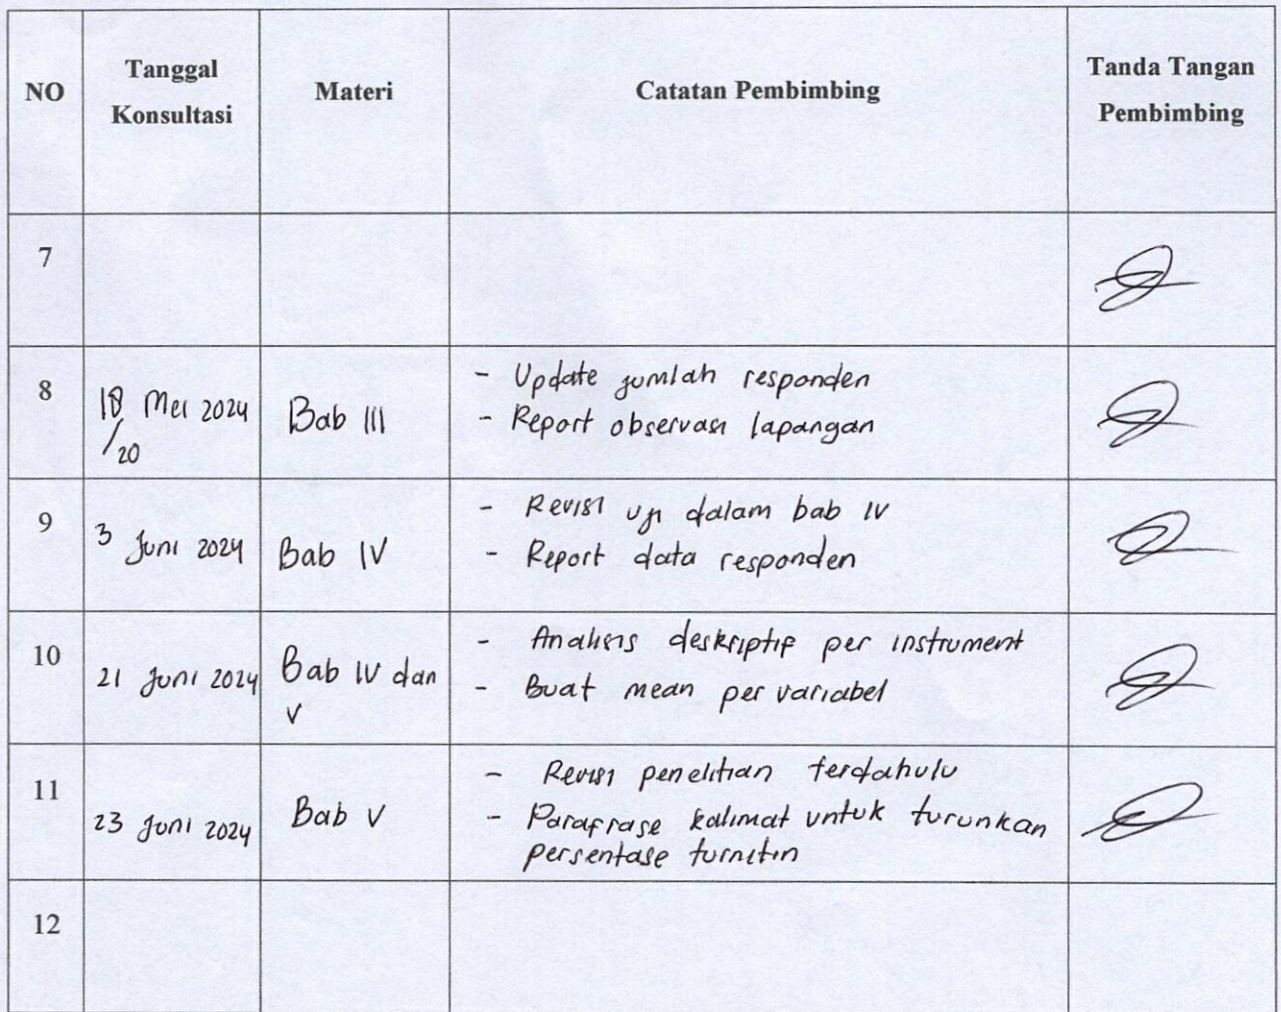 NO
Tanggal
Konsultasi
Materi
Catatan Pembimbing
Tanda Tangan
Pembimbing
7
8
18 Mei 2024
/20
Bab III
- Update jumlah responden
- Report observasi lapangan
9
3 Juni 2024
Bab IV
- Revisi uji dalam bab IV
- Report data responden
10
21 Juni 2024
Bab IV dan
V
- Analisis deskriptif per instrument
- Buat mean per variabel
11
23 Juni 2024
Bab V
- Revisi penelitian terdahulu
- Parafrase kalimat untuk turunkan
persentase turnitin
12